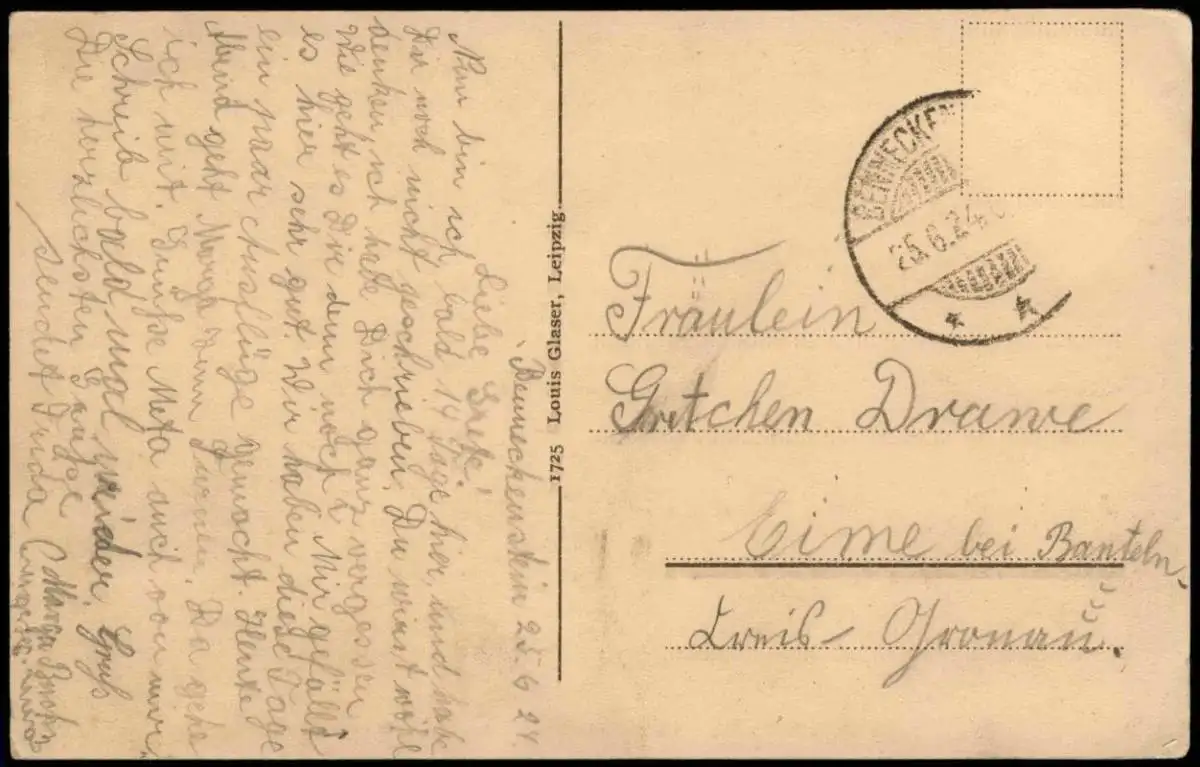 Benneckenstein 25.6 24.
Liebe Grete!
Nun bin ich bald 14 Tage hier und habe
Dir noch nicht geschrieben. Du wirst wohl
denken, ich habe Dich ganz vergessen
Wie geht es Dir denn noch? Mir gefällt
es hier sehr gut. Wir haben diese Tage
ein paar Ausflüge gemacht. Heute
Abend geht Marga zum Turnen. Da gehe
ich mit. Grüße Meta auch von mir
Schreib bald mal wieder. Gruß
Die herzlichsten Grüße Marga
sendet Dir
1725 Louis Glaser, Leipzig.
BENNECKEN
25.6.24
Fräulein
Gretchen Drawe
Eime bei Banteln.
Kreis- Gronau.